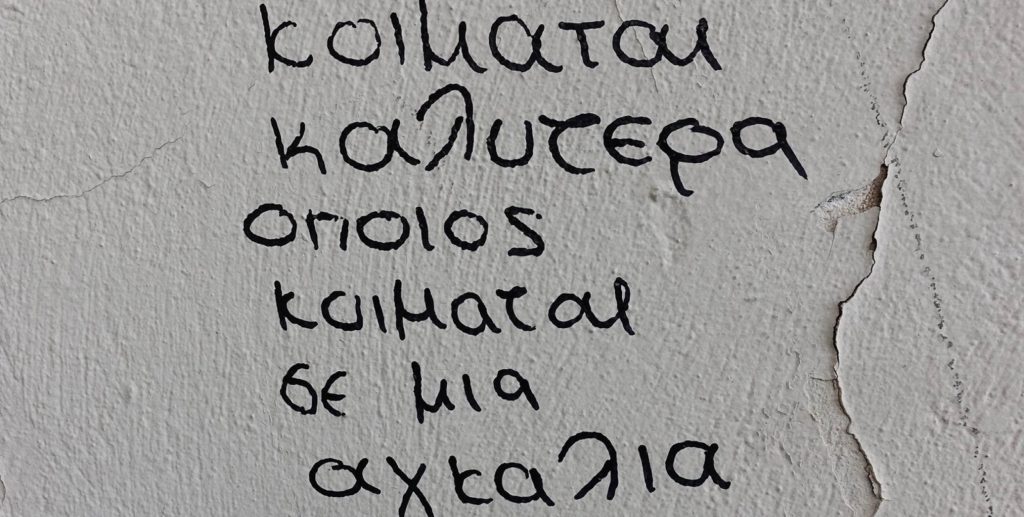 κοιμαται
καλυτερα
οποιος
κοιμαται
σε μια
αγκαλια